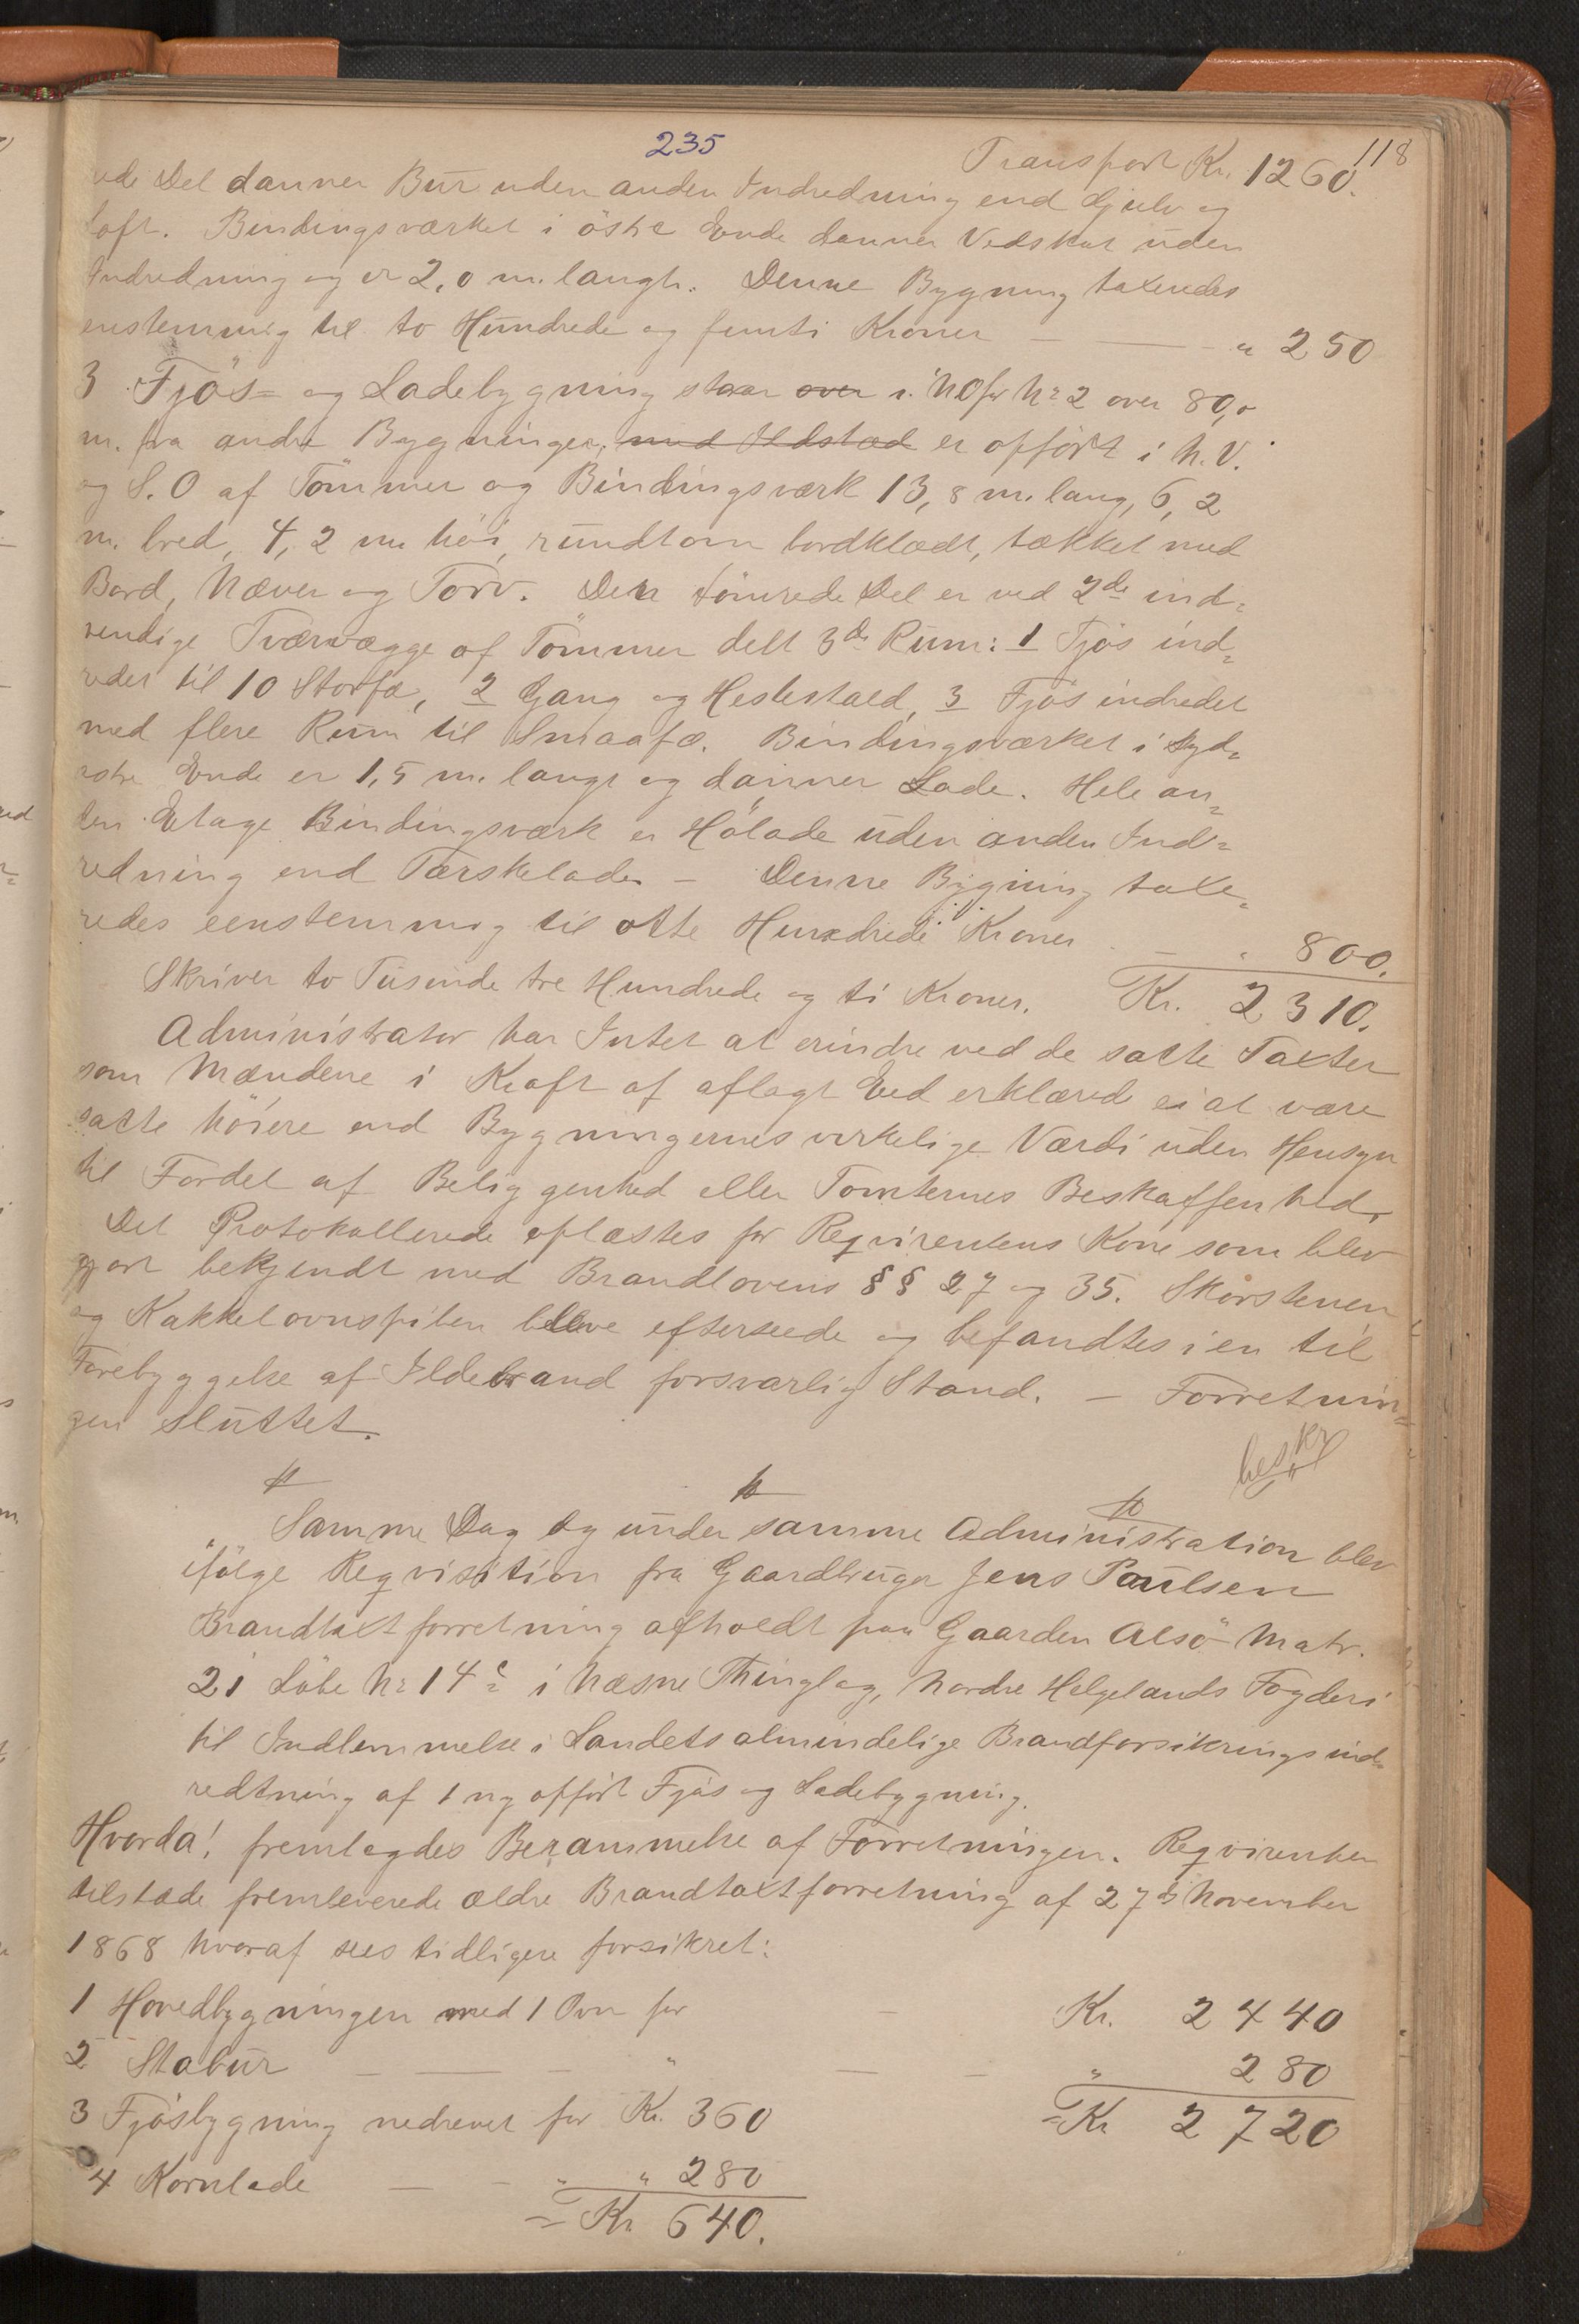 235
118
Transport Kr. 1260.
ede Del danner Bur uden anden Indredning end Gjulv og
Loft. Bindingsværket i östre Ende danner Vedskur uden
Indredning og er 2,0 m. langt. Denne Bygning taxeredes
enstemmig til to Hundrede og femti Kroner — — " 250
3 Fjös- og Ladebygning staar over i NO for No 2 over 80,0
m. fra andre Bygninger, med Ildsted er opfört i N.V.
og S.O af Tömmer og Bindingsværk 13,8 m. lang, 6,2
m. bred, 4,2 m. höi, rundtom bordklædt, tækket med
Bord, Næver og Torv. Den tömrede Del er ved 2de ind-
vendige Tværvægge af Tömmer delt 3de Rum: 1 Fjös ind-
redet til 10 Storfæ, 2 Gang og Hestestald, 3 Fjös indredet
med flere Rum til Smaafæ. Bindingsværket i Syd-
östre Ende er 1,5 m. langt og danner Lade. Hele an-
den Etage Bindingsværk er Hölade uden anden Ind-
redning end Tærskelade. — Denne Bygning taxe-
redes eenstemmig til otte Hundrede Kroner — " 800.
Skriver to Tusinde tre Hundrede og ti Kroner. Kr. 2310.
Administrator har Intet at erindre ved de satte Taxter
som Mændene i Kraft af aflagt Eed erklærede ei at være
satte höiere end Bygningernes virkelige Værdi uden Hensyn
til Fordel af Beliggenhed eller Tomternes Beskaffenhed.
Det Protokollerede oplæstes for Reqvirentens Kone som blev
gjort bekjendt med Brandlovens §§ 27 og 35. Skorstenen
og Kakkelovnspiben bleve efterseede og befandtes i en til
Forebyggelse af Ildebrand forsvarlig Stand. — Forretnin-
gen sluttet.
beskr
Samme Dag og under samme Administration blev
ifölge Reqvisition fra Gaardbruger Jens Paulsen
Brandtaxtforretning afholdt paa Gaarden Alsö Matr.
21 Löbe No 14c i Næsne Thinglag, Nordre Helgelands Fogderi
til Indlemmelse i Landets almindelige Brandforsikringsind-
redtning af 1 ny opfört Fjös og Ladebygning.
Hvorda! fremlagdes Berammelse af Forretningen. Reqvirenten
tilstede fremleverede ældre Brandtaxtforretning af 27de November
1868 hvoraf sees tidligere forsikret:
1 Hovedbygningen med 1 Ovn for — Kr. 2440
2 Stabur — — " — — " 280
3 Fjösbygning nedrevet for Kr. 360 = Kr 2720
4 Kornlade — — " " 280
= Kr 640.